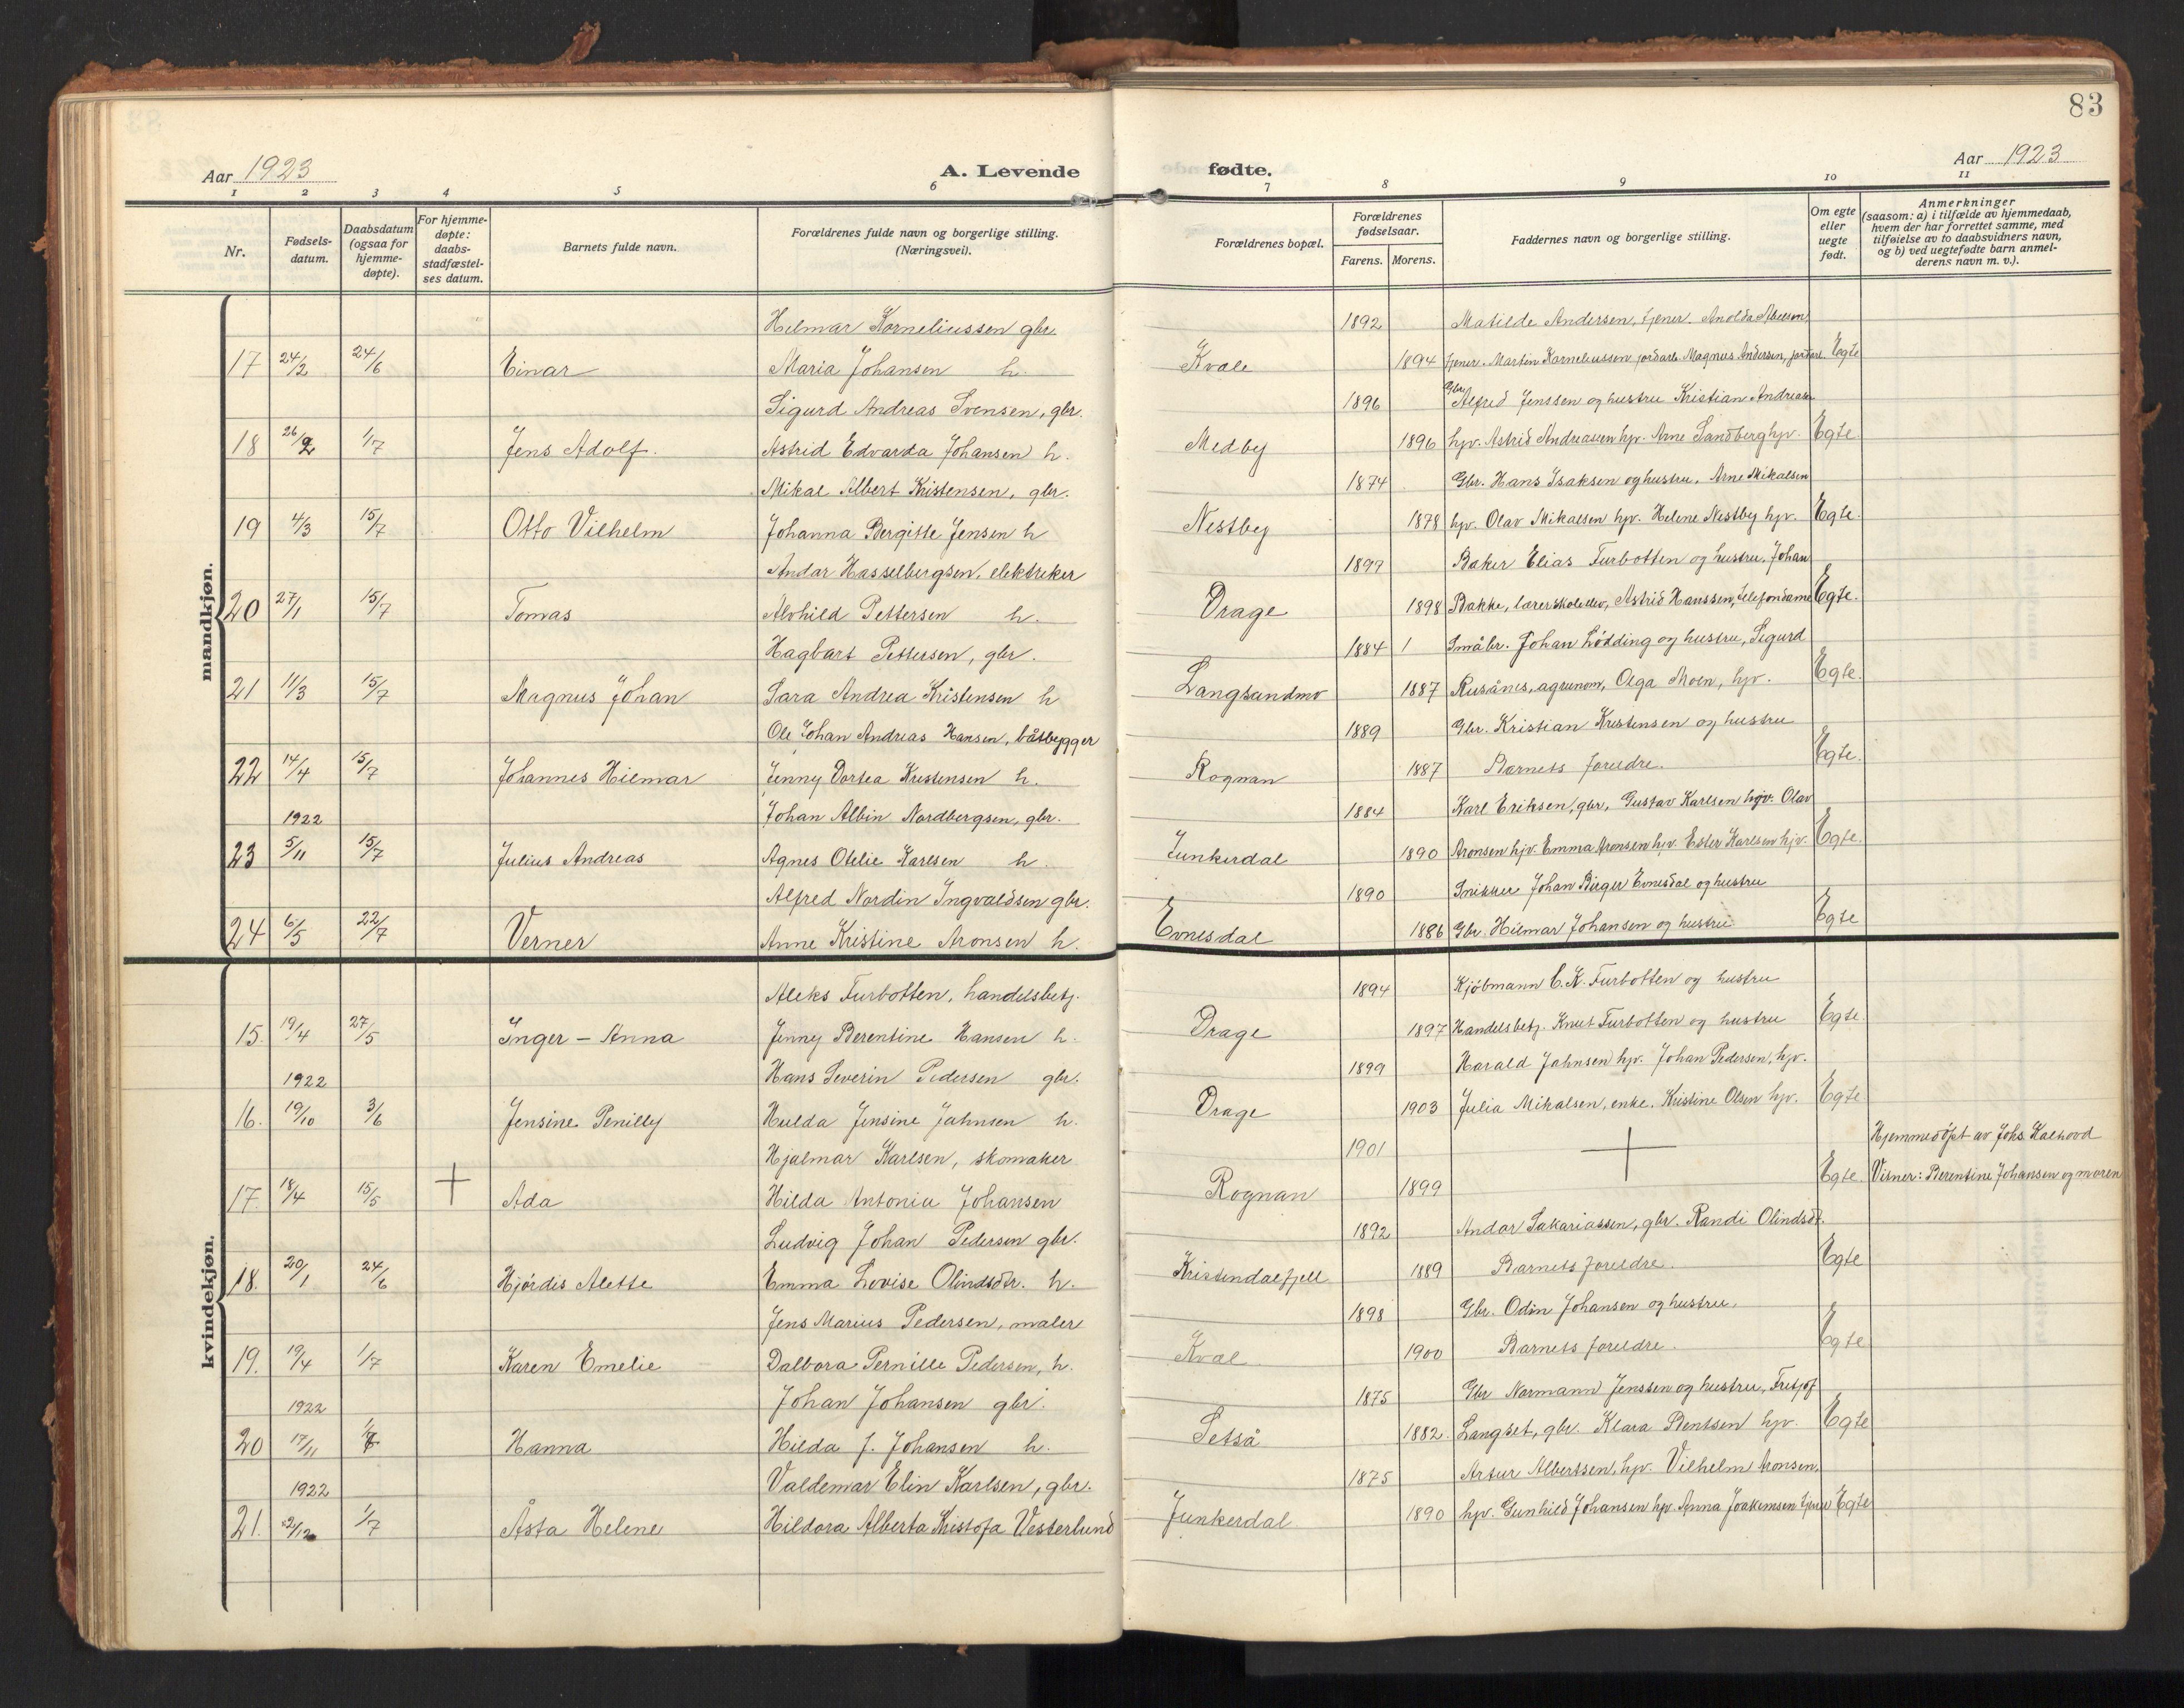 83
Aar 1923
A. Levende
fødte.
Aar 1923
1 2 3 4 5 6 7 8 9 10 11
Nr.
Fødsels-
datum.
Daabsdatum
(ogsaa for
hjemme-
døpte).
For hjemme-
døpte:
daabs-
stadfæstel-
ses datum.
Barnets fulde navn.
Forældrenes fulde navn og borgerlige stilling.
(Næringsvei).
Forældrenes bopæl.
Forældrenes
fødselsaar.
Farens. Morens.
Faddernes navn og borgerlige stilling.
Om egte
eller
uegte
født.
Anmerkninger
(saasom: a) i tilfælde av hjemmedaab,
hvem der har forrettet samme, med
tilføielse av to daabsvidners navn,
og b) ved uegtefødte barn anmel-
derens navn m. v.).
mandkjøn.
Hilmar Korneliussen gbr. 1892 Matilde Andersen, tjener.
17 24/2 24/6 Einar Maria Johansen h. Kvale 1894 tjener. Martin Korneliussen jordarb. Magnus Andersen, jordarb. Egte
Sigurd Andreas Svensen, gbr. 1896 Gbr. Alfred Jenssen og hustru Kristian Andreasen
18 26/2 1/7 Jens Adolf. Astrid Edvarda Johansen h. Medby 1896 hjv. Astrid Andreasen hjv. Arne Sandberg hjv. Egte.
Mikal Albert Kristensen, gbr. 1874 Gbr. Hans Isaksen og hustru, Arne Mikalsen
19 4/3 15/7 Otto Vilhelm Johanna Bergitte Jensen h Nestby 1878 hjv. Olav Mikalsen hjv. Helene Nestby hjv. Egte.
Andor Hasselbergsen, elektriker 1897 Baker Elias Furbotten og hustru, Johan
20 27/1 15/7 Tomas Alvhild Pettersen h. Drage 1898 Bakke, lærerskoleelev, Astrid Hanssen, telefondame Egte.
Hagbart Pettersen, gbr. 1884 1 Småbr. Johan Lødding og hustru, Sigurd
21 11/3 15/7 Magnus Johan Sara Andrea Kristensen h Langsandmo 1887 Rusånes, agronom, Olga Moen, hjv. Egte.
Ole Johan Andreas Hansen, båtbygger 1889 Gbr. Kristian Kristensen og hustru
22 14/4 15/7 Johannes Hilmar Jenny Dortea Kristensen h. Rognan 1887 Barnets foreldre. Egte.
1922 Johan Albin Nordbergsen, gbr. 1884 Karl Eriksen, gbr, Gustav Karlsen hjv. Olav
23 5/11 15/7 Julius Andreas Agnes Otelie Karlsen h. Junkerdal 1890 Aronsen hjv. Emma Aronsen hjv. Ester Karlsen hjv. Egte.
Alfred Nordin Ingvaldsen gbr. 1890 Snikker Johan Birger Evnesdal og hustru
24 6/5 22/7 Verner Anne Kristine Aronsen h. Evnesdal 1886 Gbr. Hilmar Johansen og hustru Egte
kvindekjøn.
Aleks Furbotten, handelsbetj. 1894 Kjøbmann C. K. Furbotten og hustru
15. 19/4 27/5 Inger - Anna Jenny Berentine Hansen h. Drage 1897 Handelsbetj. Knut Furbotten og hustru Egte.
1922 Hans Severin Pedersen gbr. 1899 Harald Jahnsen hjv. Johan Pedersen, hjv.
16. 19/10 3/6 Jensine Penilly Hulda Jensine Jahnsen h. Drage 1903 Julia Mikalsen, enke, Kristine Olsen hjv. Egte
Hjalmar Karlsen, skomaker 1901 Hjemmedøpt av Johs. Kalhovd
17. 18/4 15/5 + Ada Hilda Antonia Johansen Rognan 1899 + Egte. Vitner: Berentine Johansen og moren
Ludvig Johan Pedersen gbr. 1892 Andor Sakariassen, gbr. Randi Olindsdt.
18. 20/1 24/6 Hjørdis Alette Emma Lovise Olindsdtr. h. Kristendalfjell 1889 Barnets foreldre. Egte
Jens Marius Pedersen, maler 1898 Gbr. Odin Johansen og hustru.
19. 19/4 1/7 Karen Emelie Dalbora Pernille Pedersen, h. Kval 1900 Barnets foreldre. Egte
1922 Johan Johansen gbr. 1875 Gbr Normann Jenssen og hustru, Fritjof
20 17/11 1/7 Hanna Hilda J. Johansen h. Setså 1882. Langset, gbr. Klara Bentsen hjv. Egte
1922 Valdemar Elin Karlsen, gbr. 1875 Artur Albertsen, hjv. Vilhelm Aronsen,
21. 2/12 1/7 Åsta Helene Hildora Alberta Kristofa Vesterlund Junkerdal 1890 hjv. Gunhild Johansen hjv. Anna Joakimsen tjener Egte